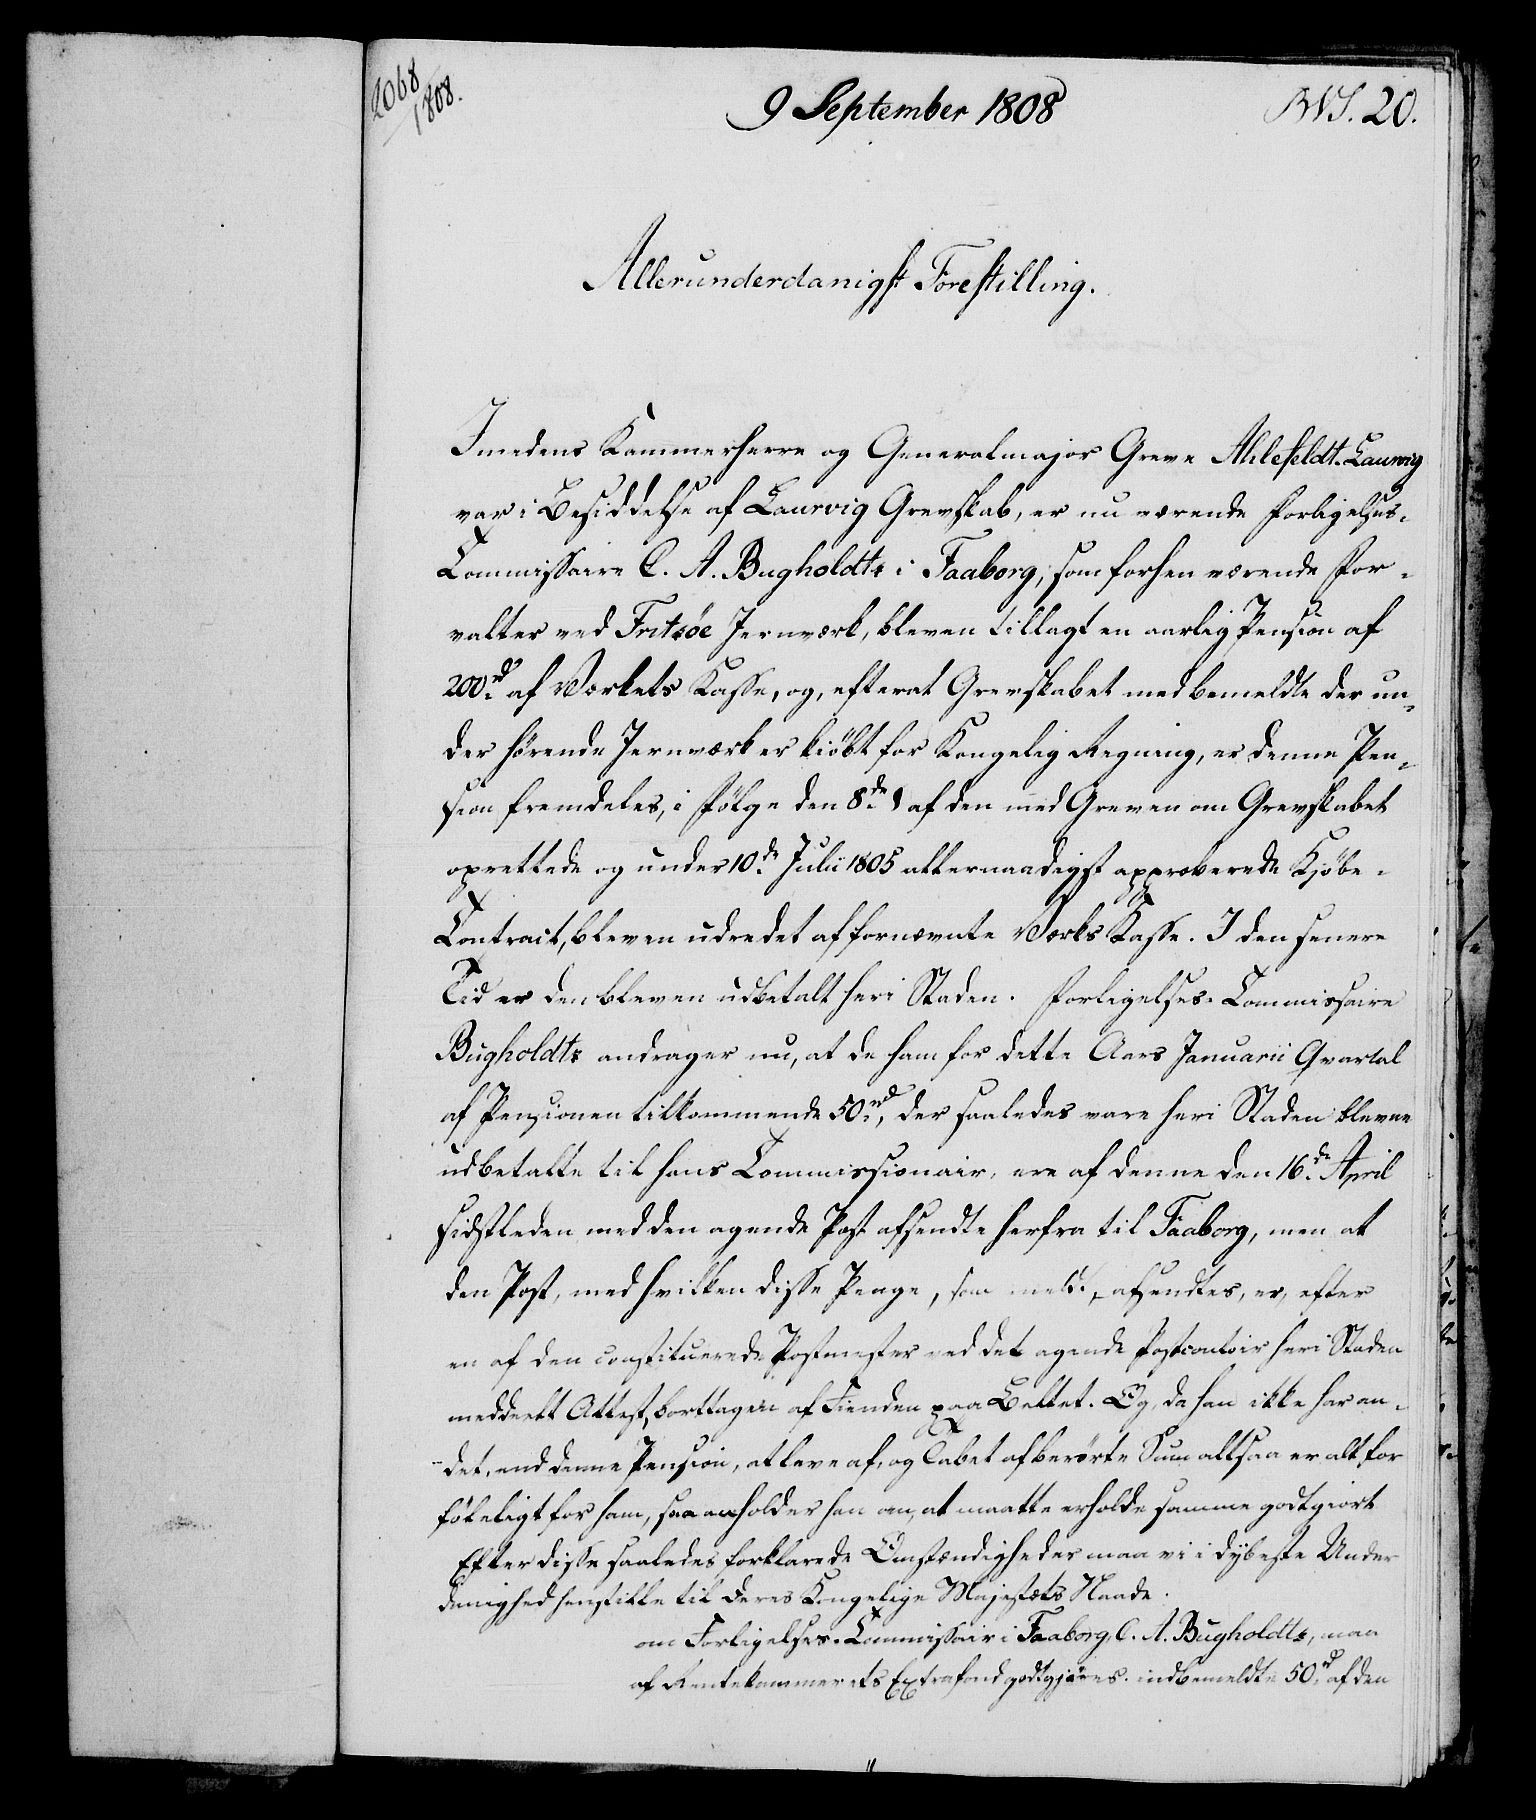 2068
1808.
9 September 1808
RVS. 20.
Allerunderdanigst Forestilling.
Imedens Kammerherre og Generalmajor Greve Ahlefeldt-Laurvig
var i Besiddelse af Laurvig Grevskab, er nu værende Forligelses-
Commissaire C. A. Bugholdtz i Faaborg, som forhen værende For-
valter ved Fritsöe Jernværk, bleven tillagt en aarlig Pension af
200 rd. af Værkets Kasse, og, efterat Grevskabet med bemeldte der un-
der hörende Jernværk er kiöbt for Kongelig Regning, er denne Pen-
sion fremdeles, i Fölge den 8de § af den med Greven om Grevskabet
oprettede og under 10de Julii 1805 allernaadigst approberede Kjöbe-
Contract, bleven udredet af fornævnte Værks Kasse. I den senere
Tid er den bleven udbetalt her i Staden. Forligelses-Commissaire
Bugholdtz andrager nu, at de ham for dette Aars Januarii Qvartal
af Pensionen tilkommende 50 rd., der saaledes vare her i Staden blevne
udbetalte til hans Commissionair, ere af denne den 16de April
sidstleden med den agende Post afsendte herfra til Faaborg, men at
den Post, med hvilken disse Penge, som meldt, afsendtes, er, efter
en af den constituerede Postmester ved det agende Postcontoir her i Staden
meddeelt Attest, borttagen af Fienden paa Beltet. Og, da han ikke har an-
det, end denne Pension, at leve af, og Tabet af berörte Sum altsaa er alt for
föleligt for ham, saa anholder han om, at maatte erholde samme godtgiort
Efter disse saaledes forklarede Omstændigheder maa vi i dybeste Under
danighed henstille til Deres Kongelige Majestæts Naade:
om Forligelses-Commissair i Faaborg, C. A. Bugholdtz, maa
af Rentekammerets Extrafond godtgjöres indbemeldte 50 rd. af den